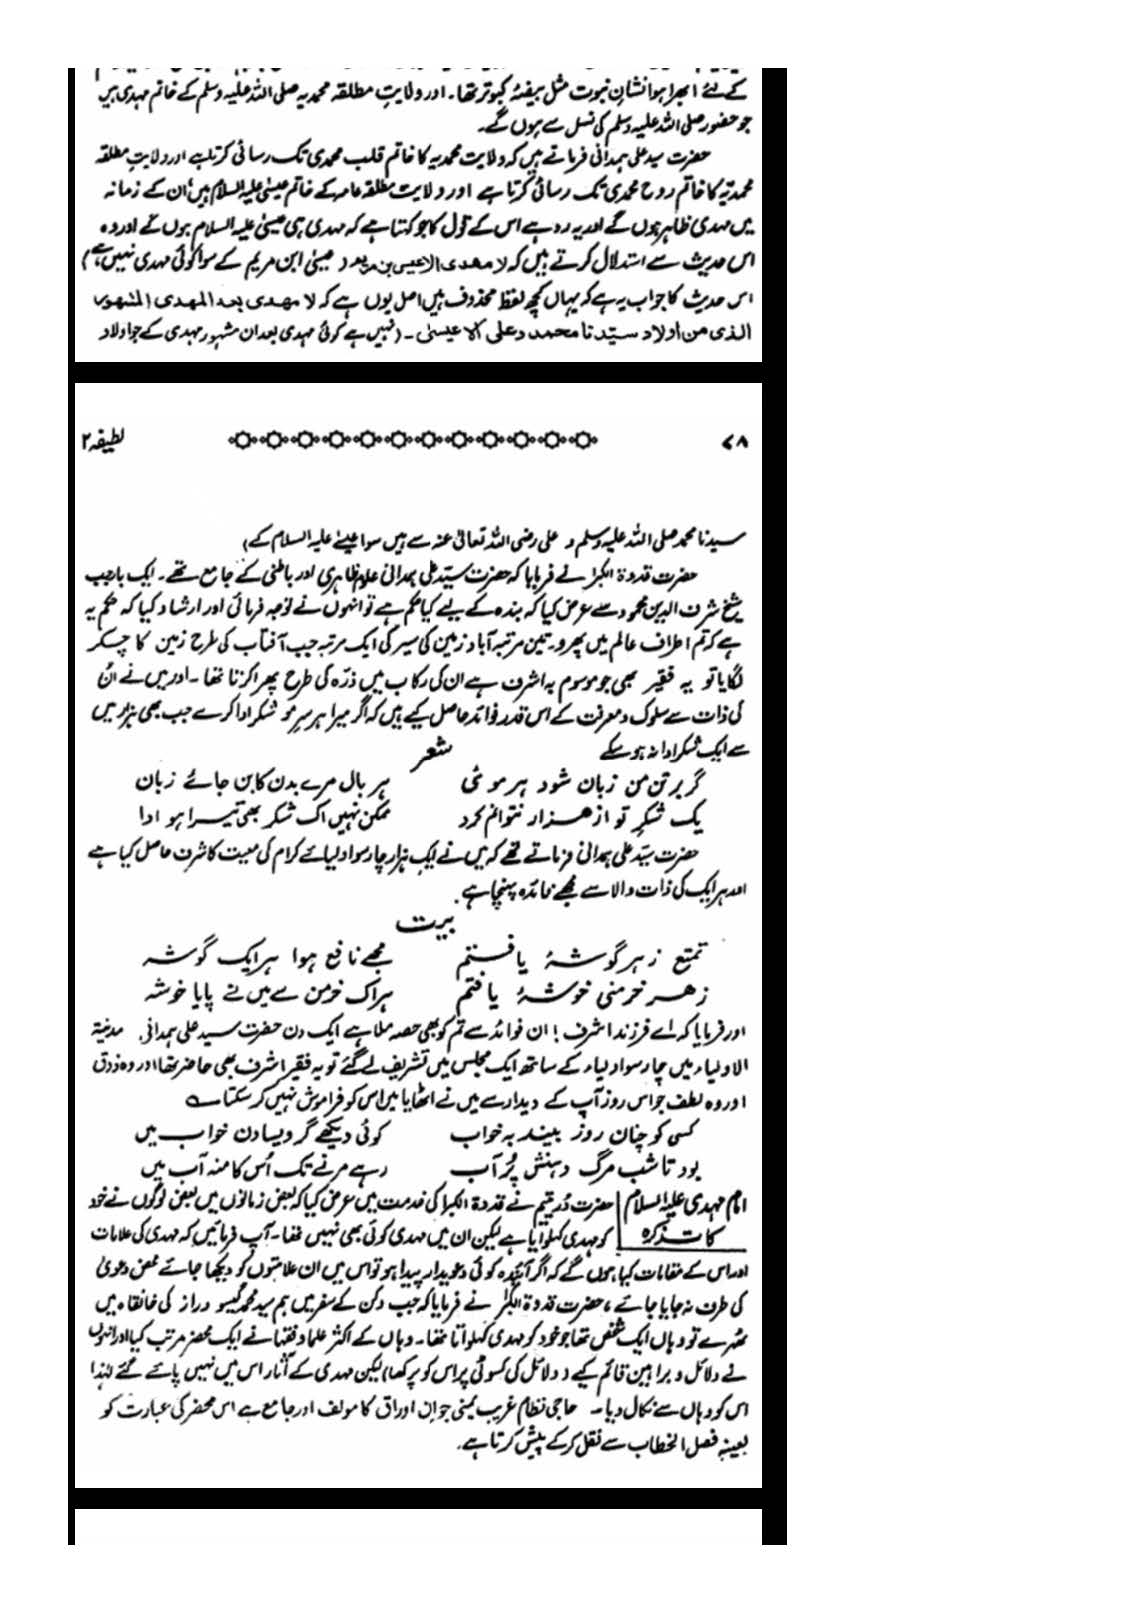 کے لئے ابھرا ہوا نشانِ نبوت مثل بیضۂ کبوتر تھا۔ اور ولایتِ مطلقہ محمدیہ صلی اللہ علیہ وسلم کے خاتم مہدی ہیں
جو حضور صلی اللہ علیہ وسلم کی نسل سے ہوں گے۔
حضرت سید علی ہمدانی فرماتے ہیں کہ ولایت محمدیہ کا خاتم قلب محمدی تک رسائی کرتا ہے اور ولایتِ مطلقہ
محمدیّہ کا خاتم روح محمدی تک رسائی کرتا ہے اور ولایت مطلقہ عامہ کے خاتم عیسیٰ علیہ السلام ہیں، ان کے زمانہ
میں مہدی ظاہر ہوں گے اور یہ رد ہے اس کے قول کا جو کہتا ہے کہ مہدی ہی عیسیٰ علیہ السلام ہوں گے اور وہ
اس حدیث سے استدلال کرتے ہیں کہ لا مهدی الا عیسی بن مریم (عیسیٰ ابن مریم کے سوا کوئی مہدی نہیں ہے)
اس حدیث کا جواب یہ ہے کہ یہاں کچھ لفظ محذوف ہیں اصل یوں ہے کہ لا مهدی بعد المهدی المشهور
الذی من اولاد سیّدنا محمد وعلی الا عیسیٰ۔ (نہیں ہے کوئی مہدی بعد ان مشہور مہدی کے جو اولاد
۷۸ لطیفہ ۲
سیدنا محمد صلی اللہ علیہ وسلم و علی رضی اللہ تعالیٰ عنہ سے ہیں سوا عیسیٰ علیہ السلام کے)
حضرت قدوۃ الکبرٰ نے فرمایا کہ حضرت سیّد علی ہمدانی علوم ظاہری اور باطنی کے جامع تھے۔ ایک بار جب
شیخ شرف الدین محمود سے عرض کیا کہ بندہ کے لیے کیا حکم ہے تو انہوں نے توجہ فرمائی اور ارشاد کیا کہ حکم یہ
ہے کہ تم اطراف عالم میں پھرو۔ تین مرتبہ آباد زمین کی سیر کی ایک مرتبہ جب آفتاب کی طرح زمین کا چکر
لگایا تو یہ فقیر بھی جو موسوم بہ اشرف ہے ان کی رکاب میں ذرّہ کی طرح پھرا کرتا تھا۔ اور میں نے اُن
کی ذات سے سلوک و معرفت کے اس قدر فوائد حاصل کیے ہیں کہ اگر میرا ہر سر مو شکر ادا کرے جب بھی ہزار میں
سے ایک شکر ادا نہ ہو سکے
شعر
گر بر تن من زبان شود ہر موئی ہر بال مرے بدن کا بن جائے زبان
یک شکرِ تو از ہزار نتوانم کرد ممکن نہیں اک شکر بھی تیرا ہو ادا
حضرت سیّد علی ہمدانی فرماتے تھے کہ میں نے ایک ہزار چار سو اولیائے کرام کی معیت کا شرف حاصل کیا ہے
اور ہر ایک کی ذات والا سے مجھے فائدہ پہنچا ہے۔
بیت
تمتع ز ہر گوشۂ یافتم مجھے نافع ہوا ہر ایک گوشہ
ز ہر خرمنی خوشۂ یافتم ہر اک خرمن سے میں نے پایا خوشہ
اور فرمایا کہ اے فرزند اشرف! ان فوائد سے تم کو بھی حصہ ملا ہے ایک دن حضرت سید علی ہمدانی، مدنیۃ
الاولیاء میں چار سو اولیاء کے ساتھ ایک مجلس میں تشریف لے گئے تو یہ فقیر اشرف بھی حاضر تھا اور وہ ذوق
اور وہ لطف جو اس روز آپ کے دیدار سے میں نے اٹھایا میں اس کو فراموش نہیں کر سکتا ؎
کسی کو چنان روز بیند بہ خواب کوئی دیکھے گر ویسا دن خواب میں
بود تا شب مرگ دہنش پُر آب رہے مرنے تک اُس کا منہ آب میں
امام مہدی علیہ السلام کا تذکرہ
حضرت دُرِّ یتیم نے قدوۃ الکبرا کی خدمت میں عرض کیا کہ بعض زمانوں میں بعض لوگوں نے خود
کو مہدی کہلوایا ہے لیکن ان میں مہدی کوئی بھی نہیں تھا۔ آپ فرمائیں کہ مہدی کی علامات
اور اس کے مقامات کیا ہوں گے کہ اگر آئندہ کوئی دعویدار پیدا ہو تو اس میں ان علامتوں کو دیکھا جائے محض دعویٰ
کی طرف نہ جایا جائے، حضرت قدوۃ الکبرٰ نے فرمایا کہ جب دکن کے سفر میں ہم سید محمد گیسو دراز کی خانقاہ میں
ٹھہرے تو وہاں ایک شخص تھا جو خود کو مہدی کہلواتا تھا۔ وہاں کے اکثر علما و فقہا نے ایک محضر مرتب کیا اور انہوں
نے دلائل و براہین قائم کیے (دلائل کی کسوٹی پر اس کو پرکھا) لیکن مہدی کے آثار اس میں نہیں پائے گئے لہٰذا
اس کو وہاں سے نکال دیا۔ حاجی نظام غریب یمنی جو ان اوراق کا مولف اور جامع ہے اس محضر کی عبارت کو
بعینہٖ فصل الخطاب سے نقل کر کے پیش کرتا ہے۔